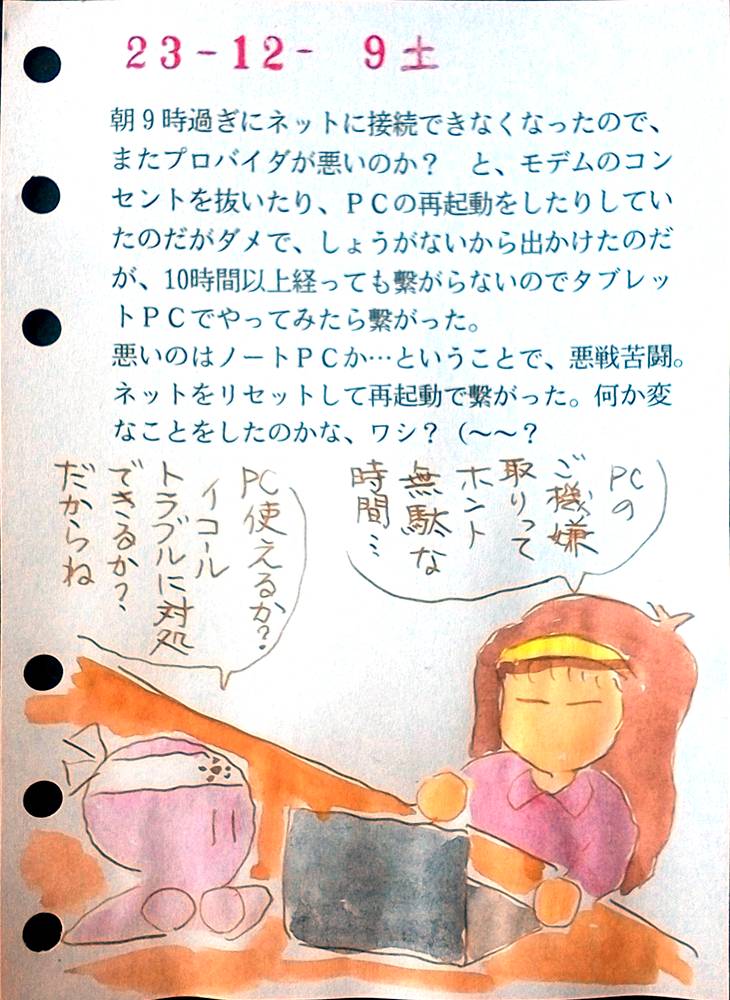 23-12- 9土
朝9時過ぎにネットに接続できなくなったので、
またプロバイダが悪いのか？　と、モデムのコン
セントを抜いたり、ＰＣの再起動をしたりしてい
たのだがダメで、しょうがないから出かけたのだ
が、10時間以上経っても繋がらないのでタブレッ
トＰＣでやってみたら繋がった。
悪いのはノートＰＣか…ということで、悪戦苦闘。
ネットをリセットして再起動で繋がった。何か変
なことをしたのかな、ワシ？（〜〜？
PCの
ご機嫌
取りって
ホント
無駄な
時間…
PC使えるか？
イコール
トラブルに対処
できるか？
だからね